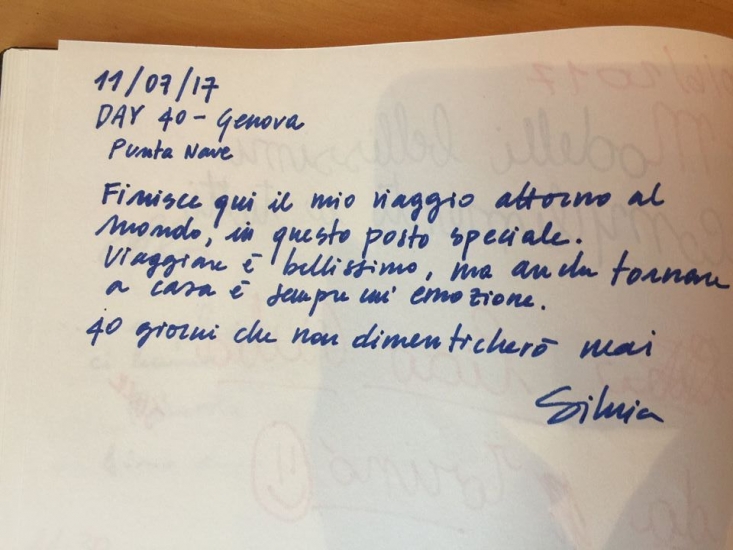 11/07/17
DAY 40 - Genova
Punta Nave
Finisce qui il mio viaggio attorno al
mondo, in questo posto speciale.
Viaggiare è bellissimo, ma anche tornare
a casa è sempre un' emozione.
40 giorni che non dimenticherò mai
Silvia